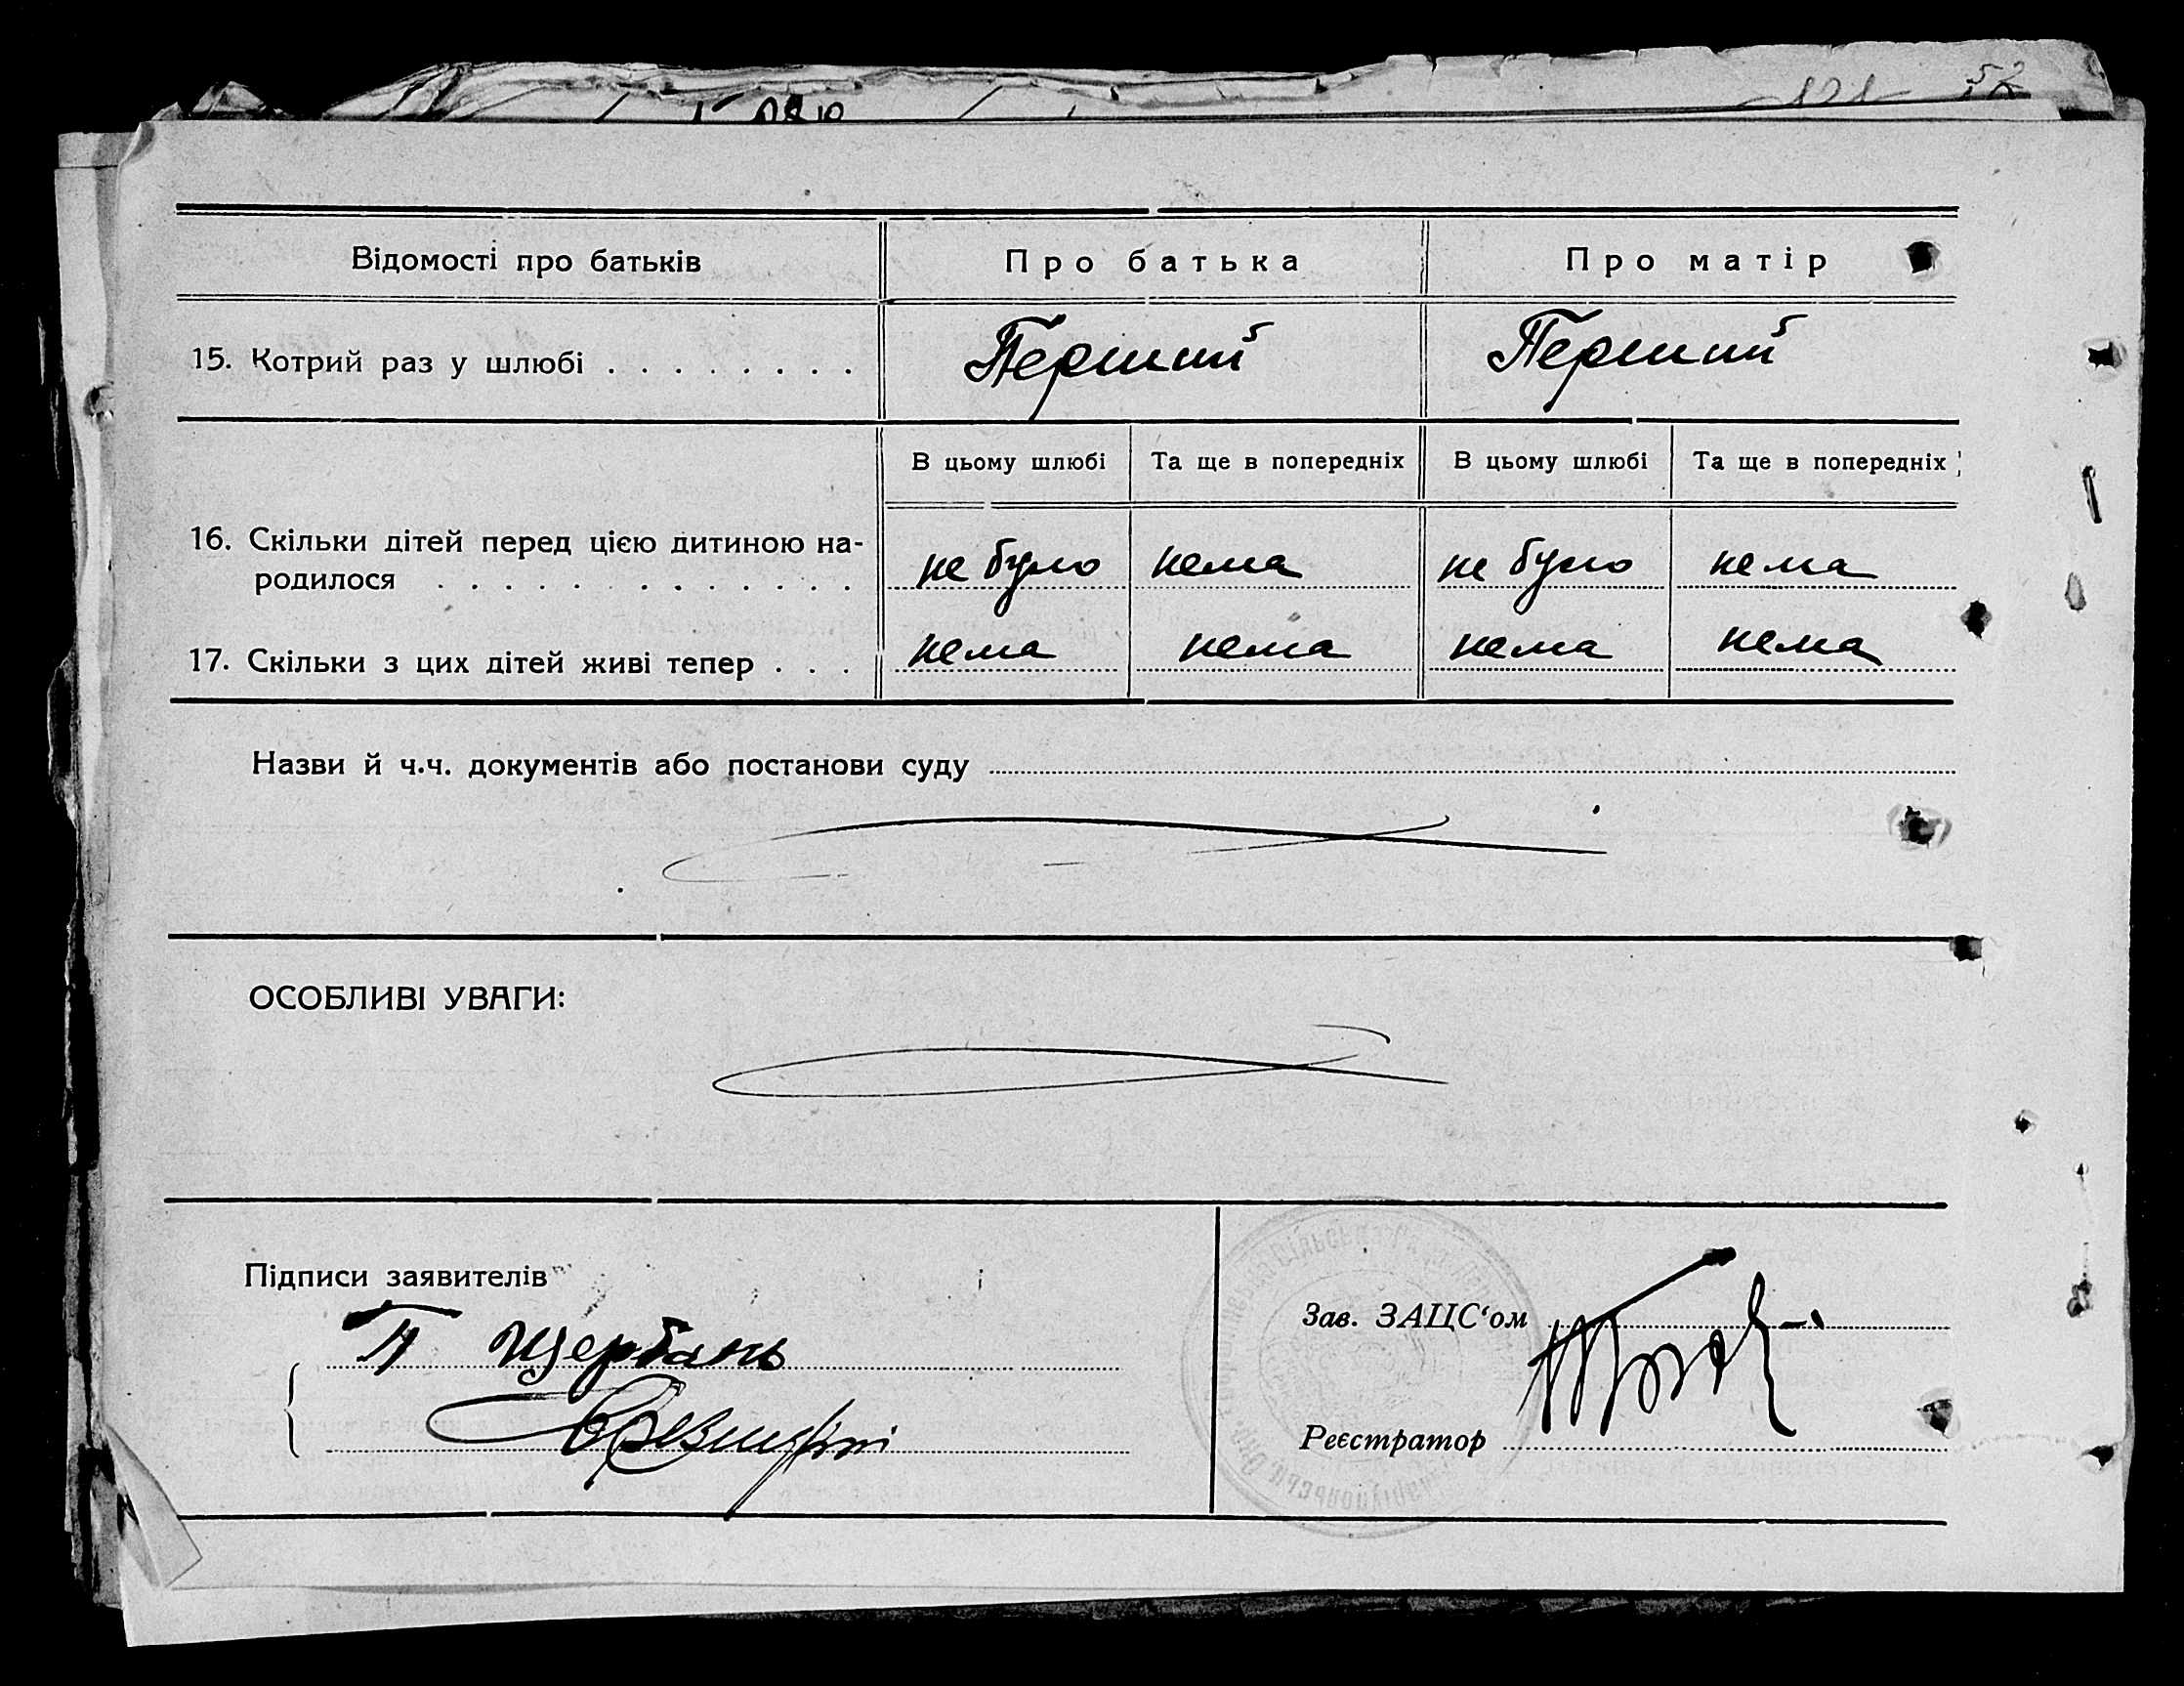 121 52
Відомості про батьків Про батька Про матір
15. Котрий раз у шлюбі . . . . . . . . Перший Перший
В цьому шлюбі Та ще в попередніх В цьому шлюбі Та ще в попередніх
16. Скільки дітей перед цією дитиною на-
родилося . . . . . . . . . . . . . не було нема не було нема
17. Скільки з цих дітей живі тепер . . . нема нема нема нема
Назви й ч.ч. документів або постанови суду
ОСОБЛИВІ УВАГИ:
Підписи заявителів
П Щербань
Зав. ЗАЦС‘ом
Реєстратор